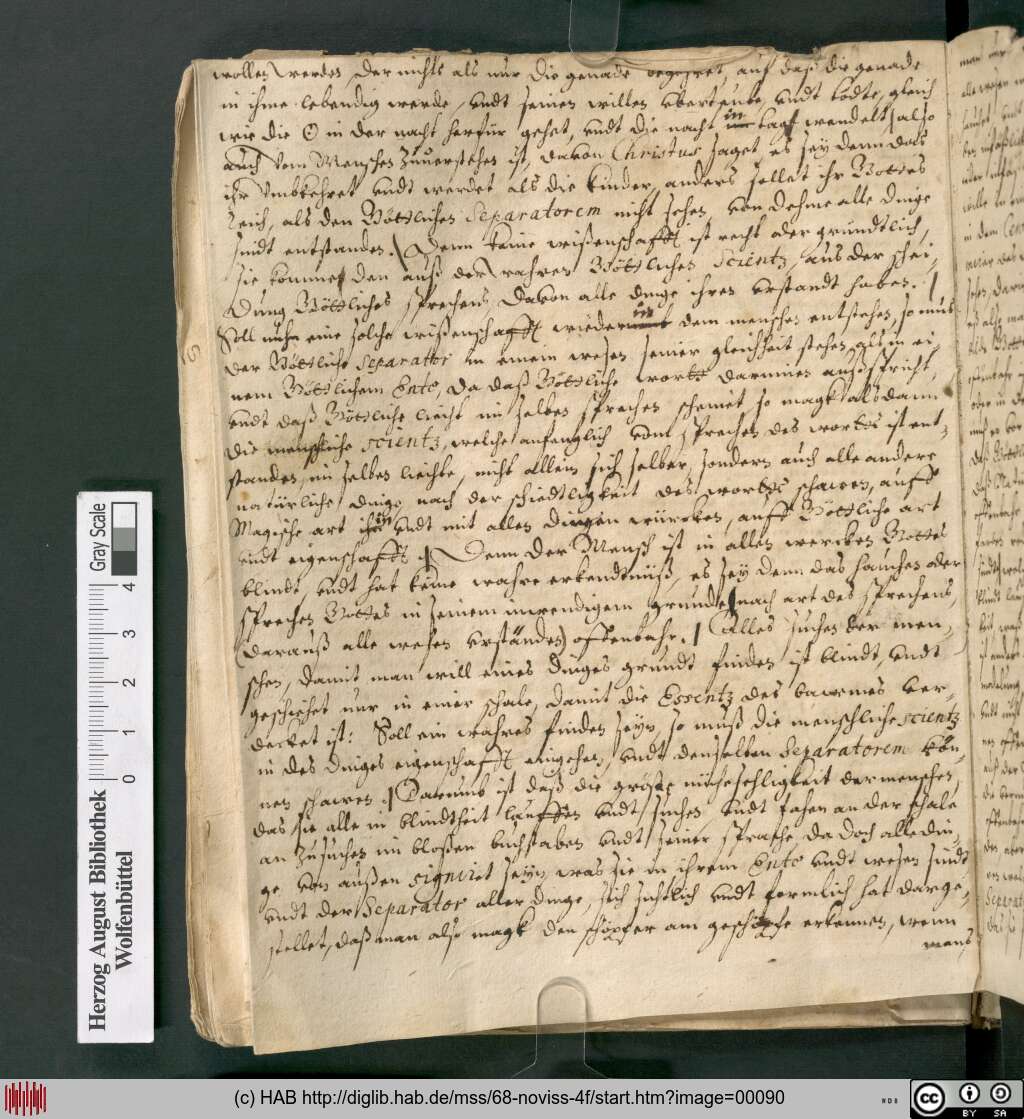 wollen werden, der nichts als nur die genade begehret, auf daß die genade
in ihme lebendig werde, undt seinen willen vberteube, undt tödte, gleich
wie die ☉ in der nacht herfür gehet, undt die nacht in tag wandelt, also
auch vom Menschen zuuerstehen ist, dauon Christus saget es sey denn das
ihr vmbkehret undt werdet als die kinder, anders sollet ihr Gottes
reich, als den Göttlichen Separatorem nicht sehen, von dehme alle dinge
sindt entstanden. Denn keine wißenschafft ist recht oder gründtlich,
sie komme den auß der wahren Göttlichen Scientz, aus der schei,
dung Göttliches sprechens, dauon alle dinge ihren vrstandt haben.
Soll nuhn eine solche wißenschafft wieder in dem menschen entstehen, so mus
der Göttliche Separator in einem wesen seiner gleichheit stehen, als in ei,
nem Göttlichem Ente, da daß Göttliche wortt darinnen außspricht,
undt daß Göttliche liecht im selben sprechen scheinet, so magk alsdann
die menschliche scientz, welche anfenglich vom sprechen des wortes ist ent,
standen, im selben liechte, nicht allein sich selber, sondern auch alle andere
natürliche dinge nach der schiedtligkeit des wortes schawen, auff
Magische art undt mit allen dingen würcken, auff Göttliche art
undt eigenschafft. Denn der Mensch ist in allen wercken Gottes
blindt, undt hat keine wahre erkendtnüß, es sey denn das hauchen oder
sprechen Gottes in seinem inwendigem grunde nach art des sprechens,
(darauß alle wesen vrständen) offenbahr. Alles suchen der men,
schen, damit man will eines dinges grundt finden ist blindt, undt
geschiehet nur in einer schale, damit die Essentz des bawmes ver,
decket ist: Soll ein wahres finden seyn, so muß die menschliche scientz
in des dinges eigenschafft eingehen, undt denselben Separatorem kön
nen schawen. Darumb ist daß die gröste mühesehligkeit der menschen,
das sie alle in blindtheit lauffen undt suchen, undt fahen an der schale
an zusuchen im bloßen buchstaben undt seiner sprache, da doch alle din,
ge von außen signiret seyn, was sie in ihrem Ente undt wesen sindt
undt der Separator aller dinge, sich sichtlich undt formlich hat darge,
stellet, daß man also magk den schöpfer am geschöpfe erkennen, wenn
mans
Herzog August Bibliothek
Wolfenbüttel
Gray Scale
0 1 2 3 4
(c) HAB http://diglib.hab.de/mss/68-noviss-4f/start.htm?image=00090
WDB
cc BY SA